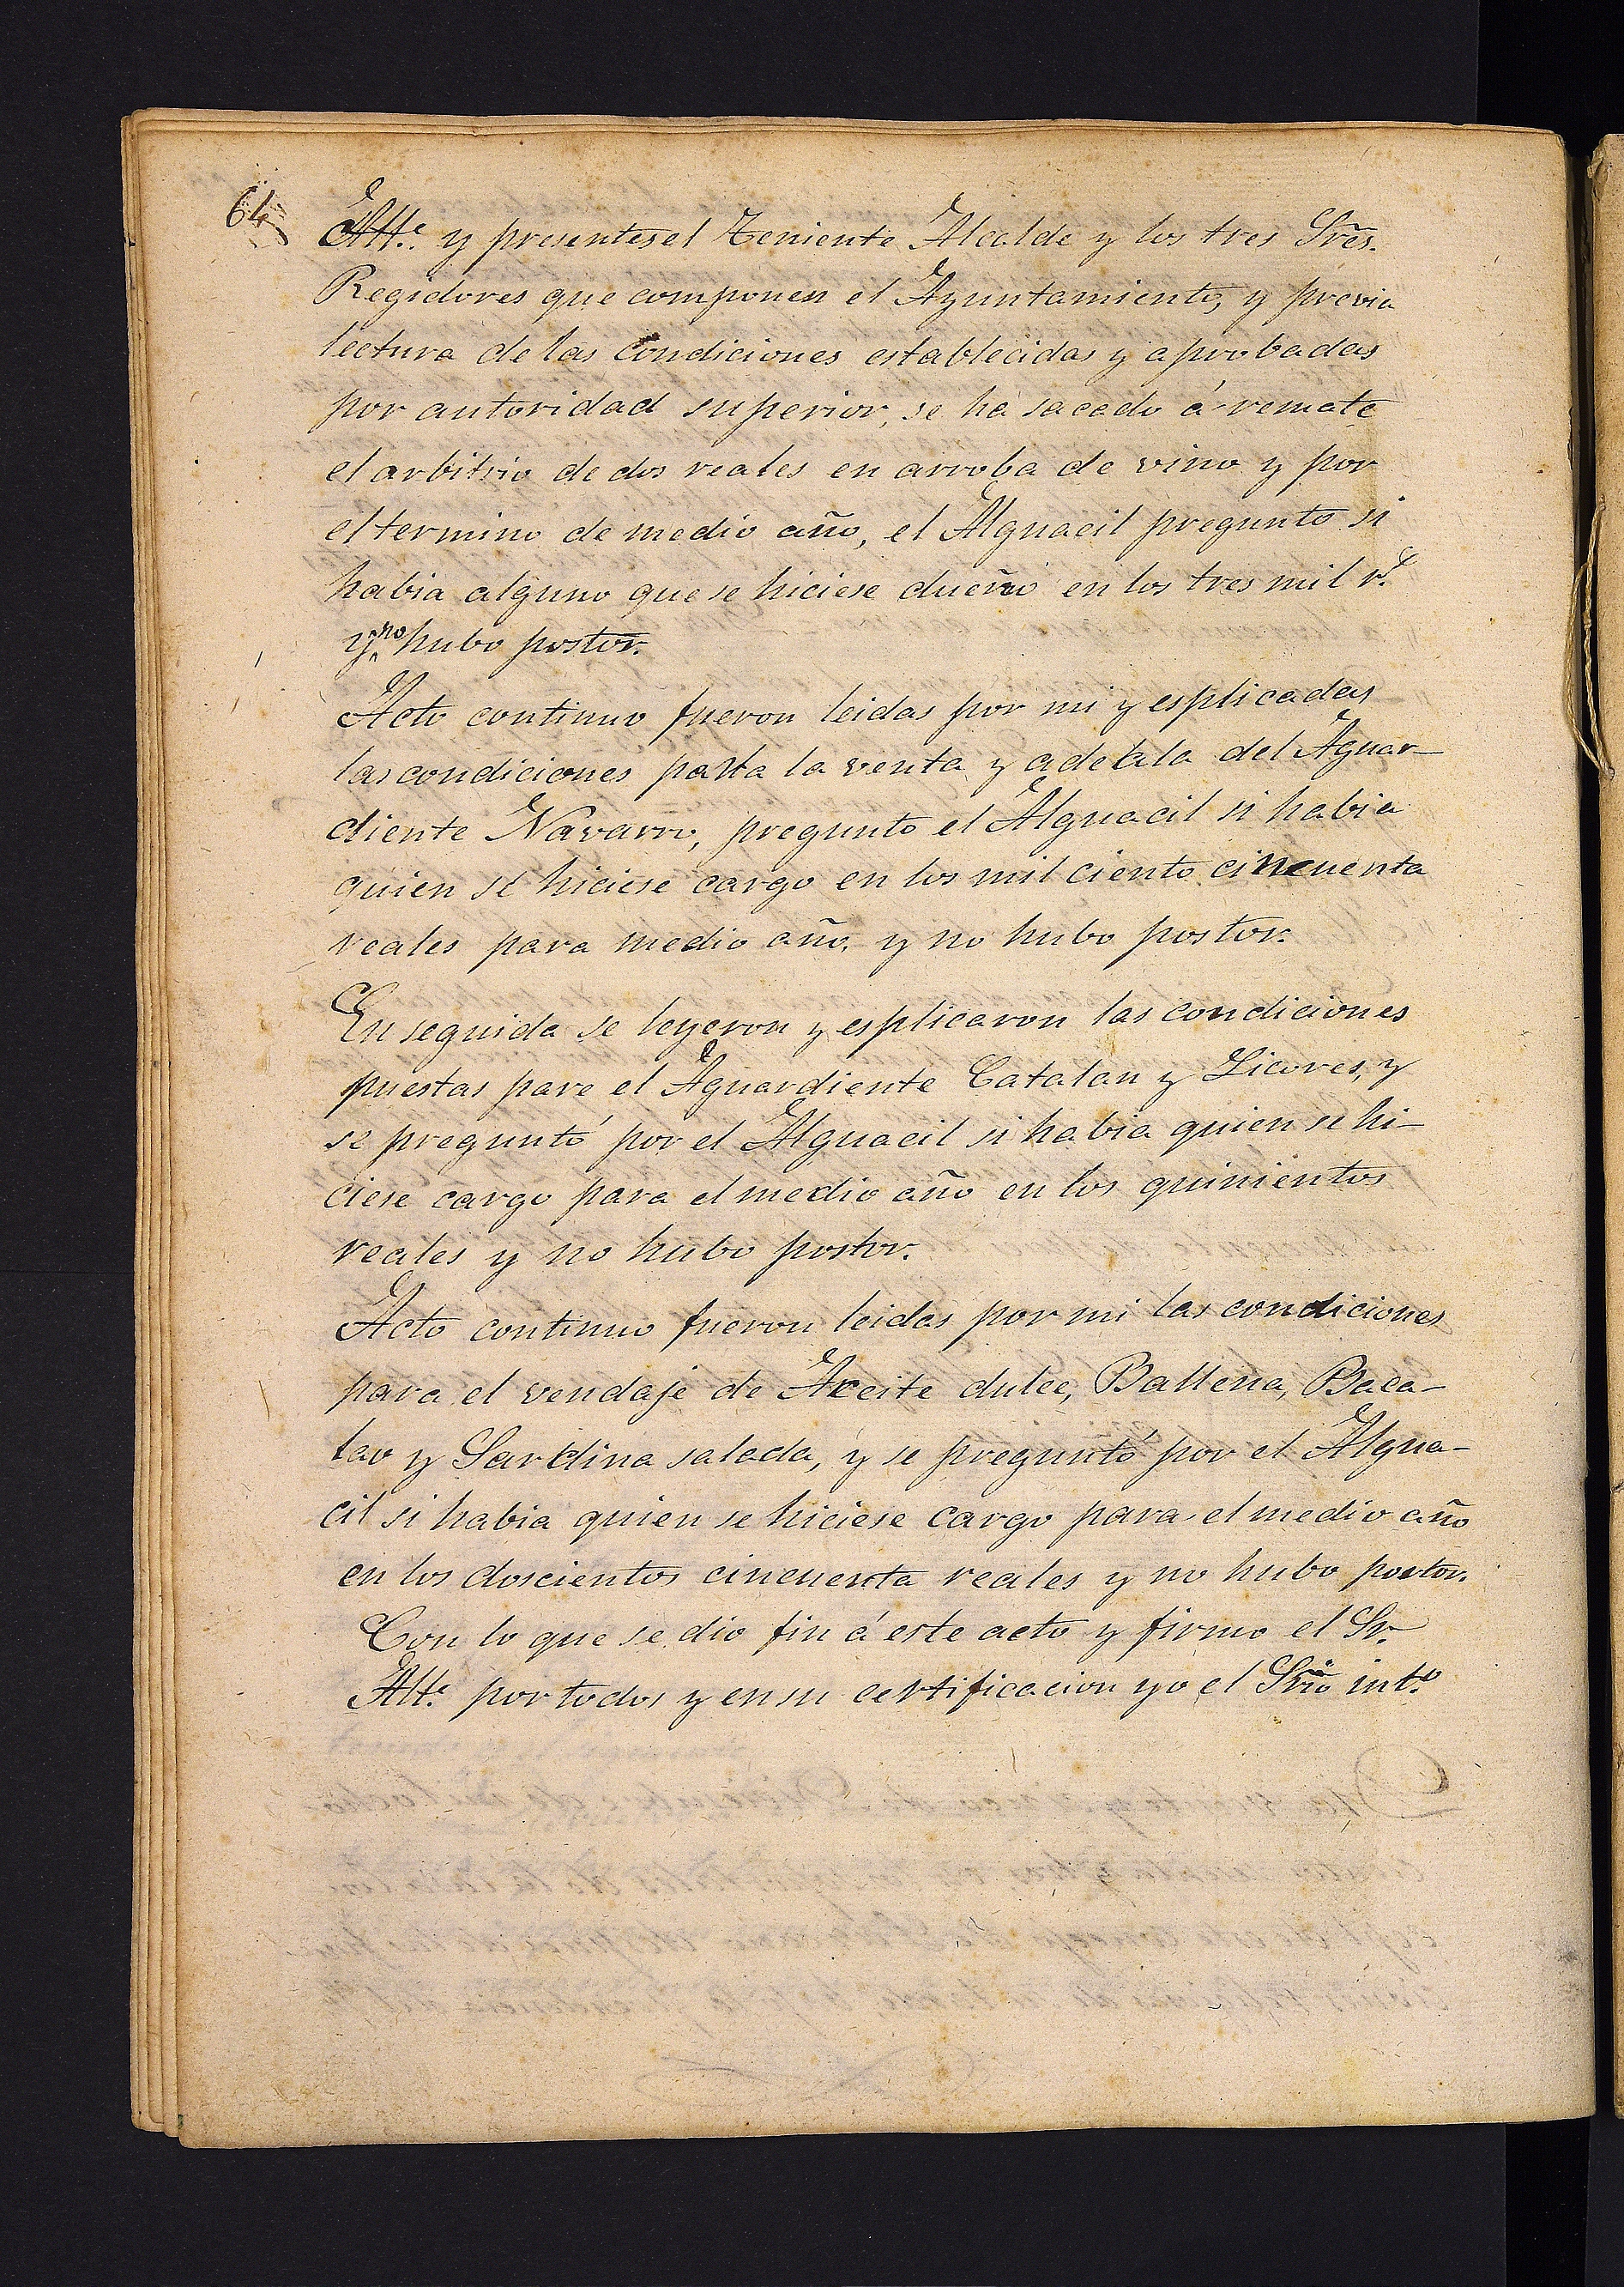 64
Alte. y presentes el Teniente Alcalde y los tres Sres.
Regidores que componen el Ayuntamiento, y previa
lectura de las condiciones establecidas y aprobadas
por autoridad superior, se ha sacado á remate
el arbitrio de dos reales en arroba de vino y por
el termino de medio año, el Alguacil pregunto si
habia alguno que se hiciese dueño en los tres mil rs.
y no hubo postor.
Acto continuo fueron leidas por mi y esplicadas
las condiciones para la venta y adeala del Aguar-
diente Navarro, pregunto el Alguacil si habia
quien se hiciese cargo en los mil ciento cincuenta
reales para medio año, y no hubo postor.
En seguida se leyeron y esplicaron las condiciones
puestas para el Aguardiente Catalan y Licores, y
se preguntó por el Alguacil si habia quien se hi-
ciese cargo para el medio año en los quinientos
reales y no hubo postor.
Acto continuo fueron leidas por mi las condiciones
para el vendaje de Aceite dulce, Ballena, Baca-
lao y Sardina salada, y se preguntó por el Algua-
cil si habia quien se hiciese cargo para el medio año
en los doscientos cincuenta reales y no hubo postor.
Con lo que se dio fin á este acto y firmo el Sr.
Alte. por todos y en su certificacion yo el Srio into.